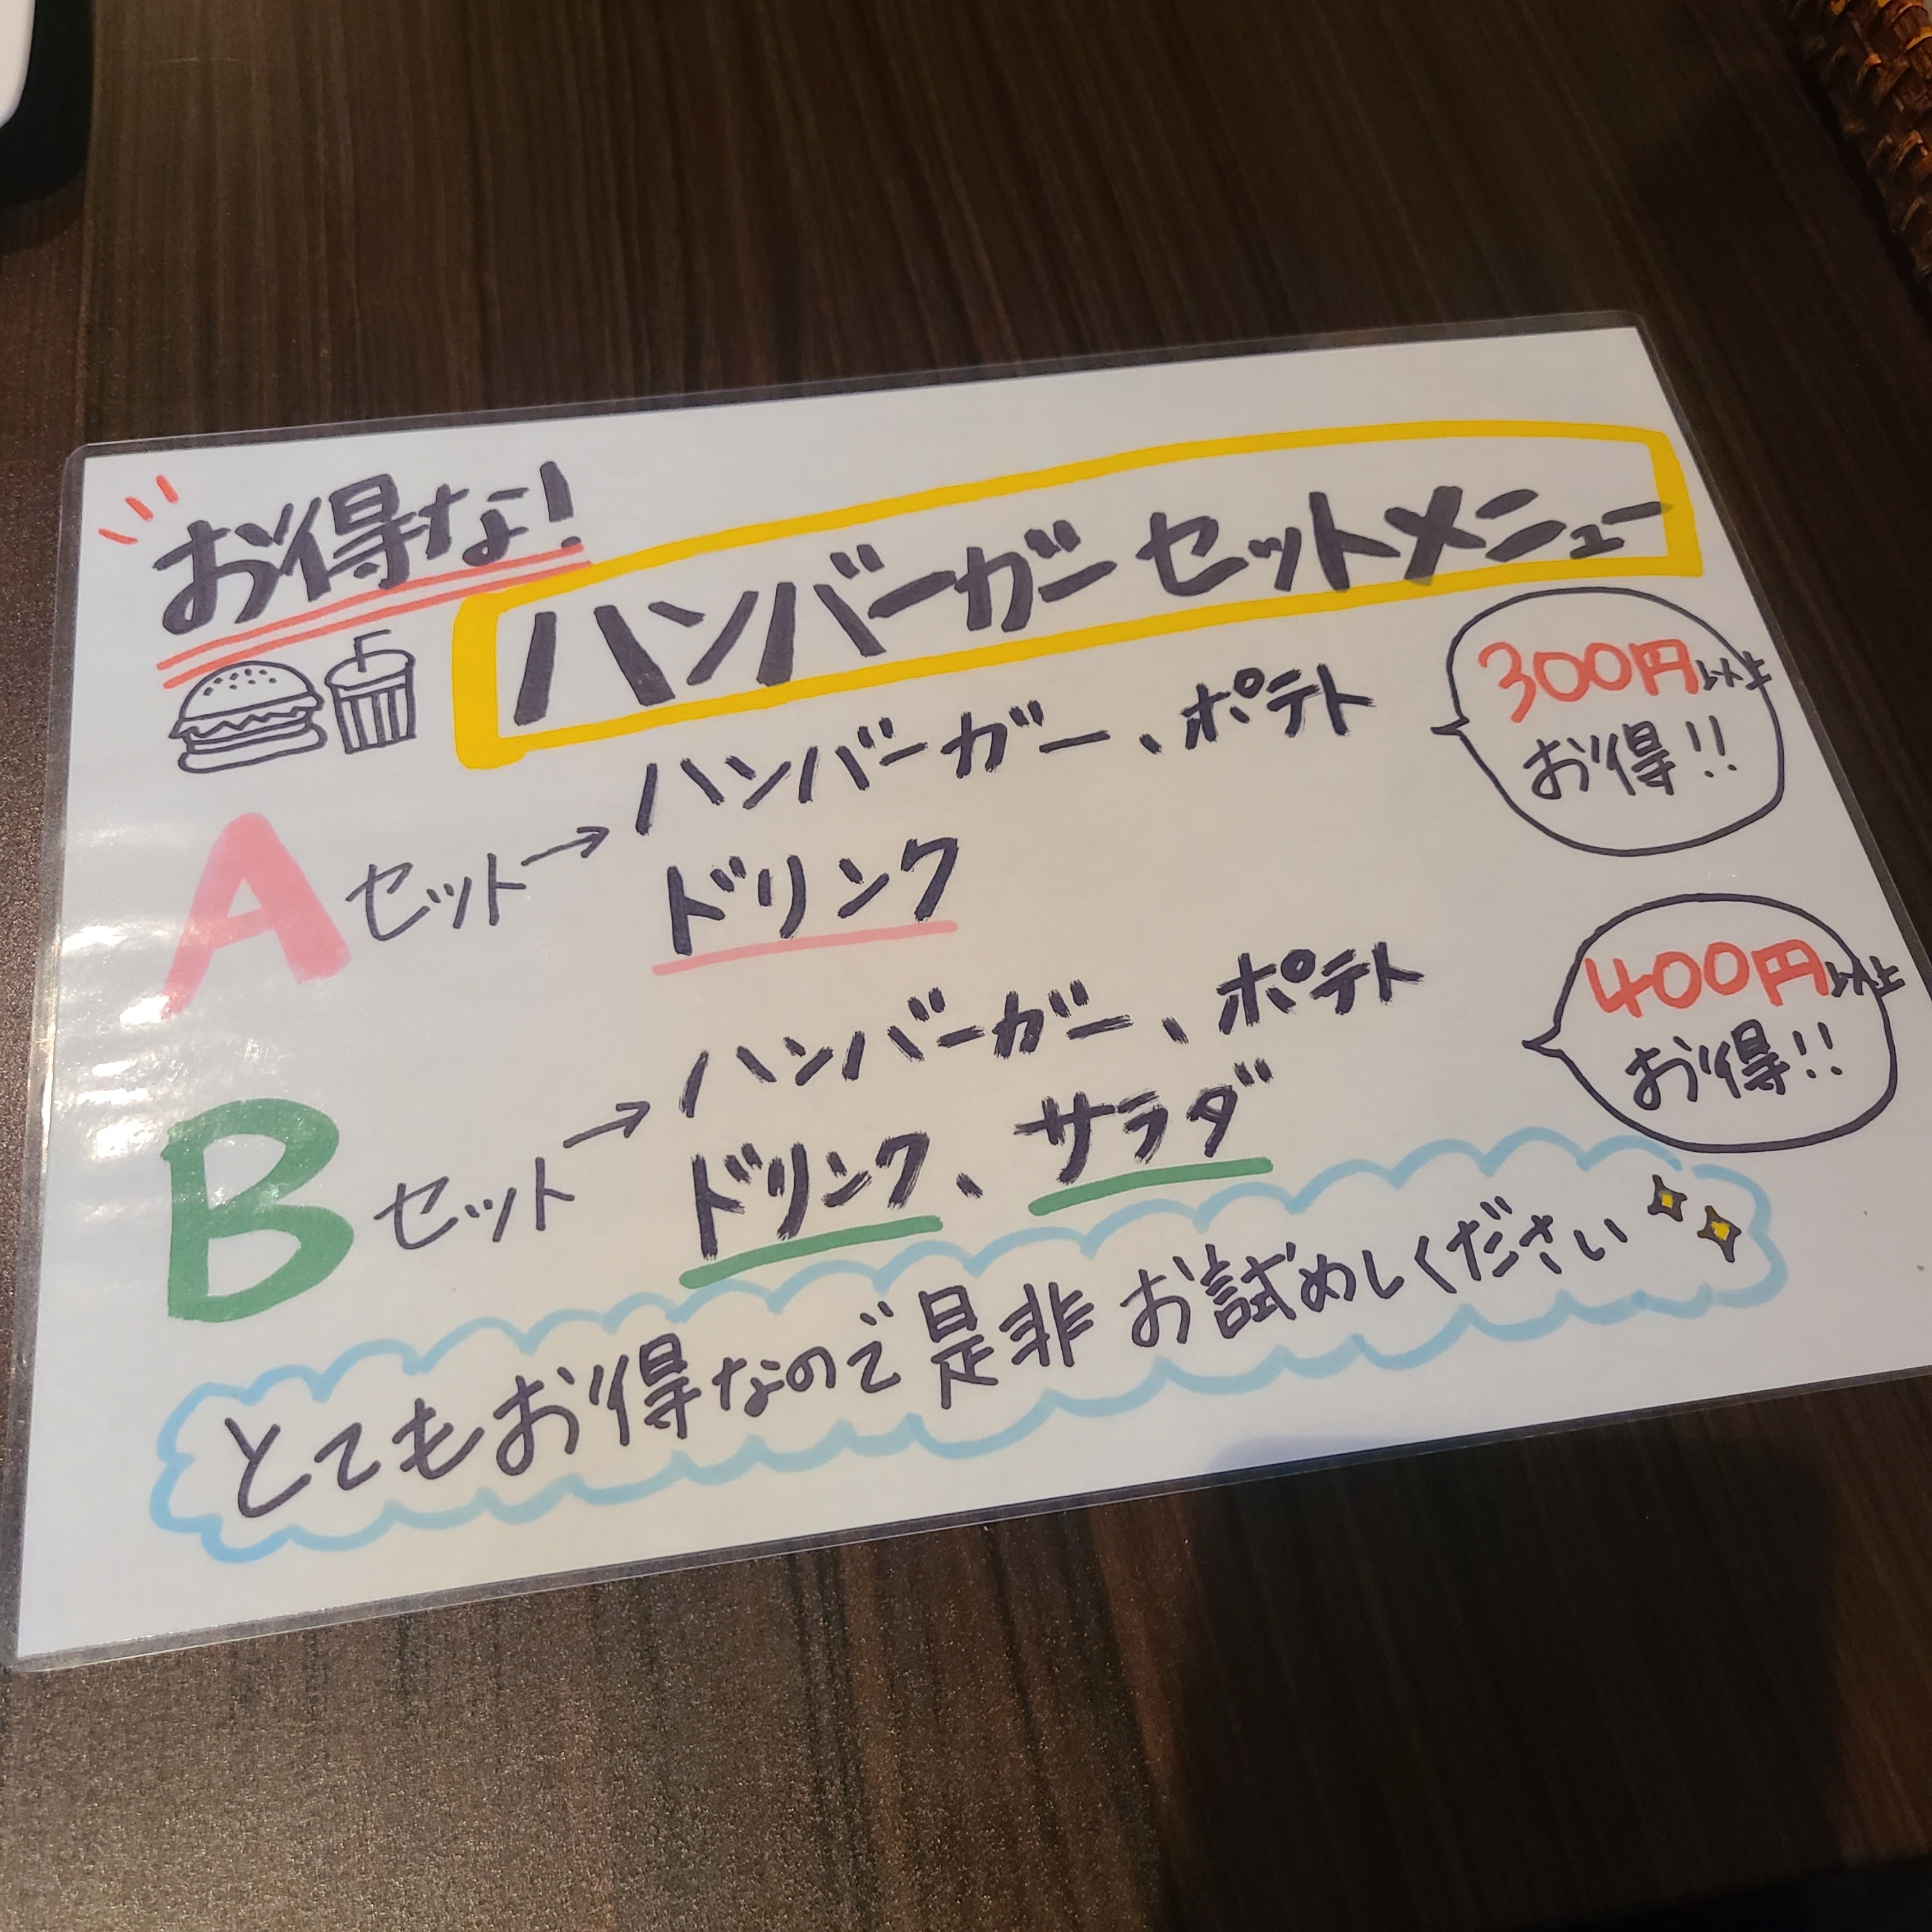 お得な!
ハンバーガーセットメニュー
Aセット→ハンバーガー、ポテト
ドリンク
300円以上
お得!!
Bセット→ハンバーガー、ポテト
ドリンク、サラダ
400円以上
お得!!
とてもお得なので是非お試めしください